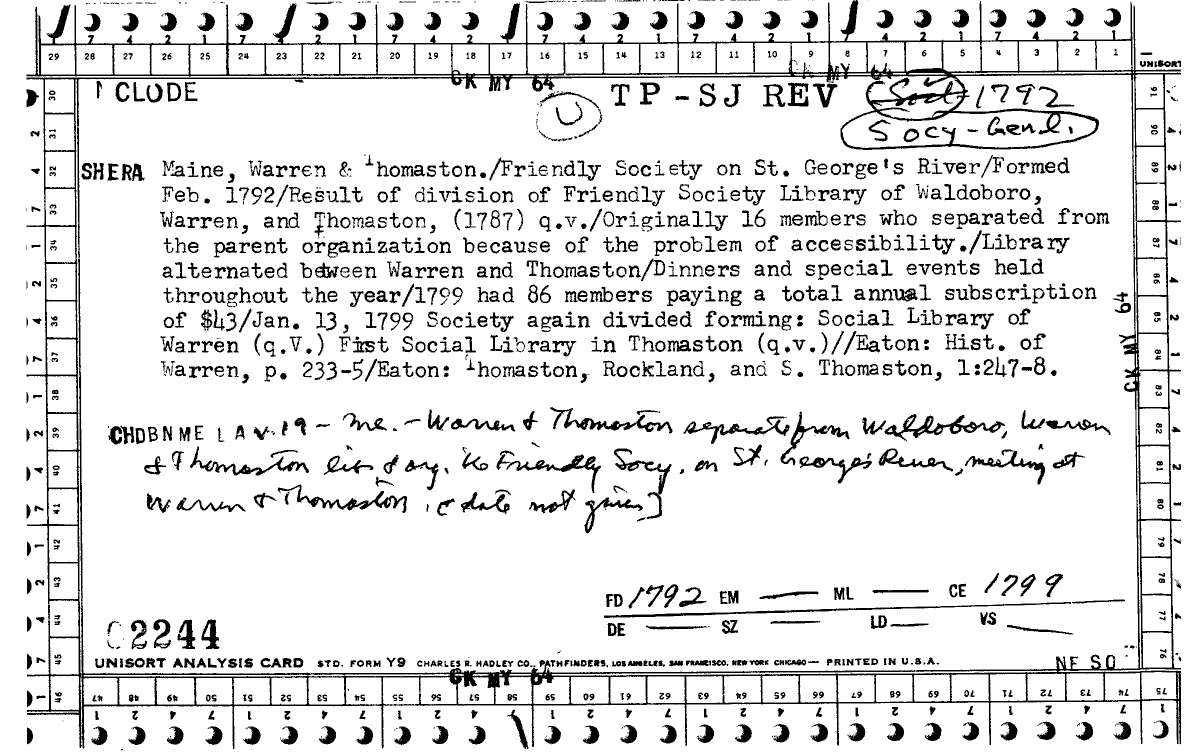 29 28 27 26 25 24 23 22 21 20 19 18 17 16 15 14 13 12 11 10 9 8 7 6 5 4 3 2 1
UNISORT
CK MY 64 CK MY 64
CLUDE TP-SJ REV 1792
U Socy-Genl.
SHERA Maine, Warren & Thomaston./Friendly Society on St. George's River/Formed
Feb. 1792/Result of division of Friendly Society Library of Waldoboro,
Warren, and Thomaston, (1787) q.v./Originally 16 members who separated from
the parent organization because of the problem of accessibility./Library
alternated between Warren and Thomaston/Dinners and special events held
throughout the year/1799 had 86 members paying a total annual subscription
of $43/Jan. 13, 1799 Society again divided forming: Social Library of
Warren (q.V.) First Social Library in Thomaston (q.v.)//Eaton: Hist. of
Warren, p. 233-5/Eaton: Thomaston, Rockland, and S. Thomaston, 1:247-8.
CK MY 64
CHDBNME L A v.19 - Me. - Warren & Thomaston separate from Waldoboro, Warren
& Thomaston lib & org. the Friendly Socy. on St. George's River, meeting at
Warren & Thomaston. [date not given]
FD 1792 EM — ML — CE 1799
DE — SZ — LD — VS —
02244
UNISORT ANALYSIS CARD STD. FORM Y9 CHARLES R. HADLEY CO., PATHFINDERS, LOS ANGELES, SAN FRANCISCO, NEW YORK CHICAGO — PRINTED IN U.S.A. NF SO
CK MY 64
47 48 49 50 51 52 53 54 55 56 57 58 59 60 61 62 63 64 65 66 67 68 69 70 71 72 73 74 75